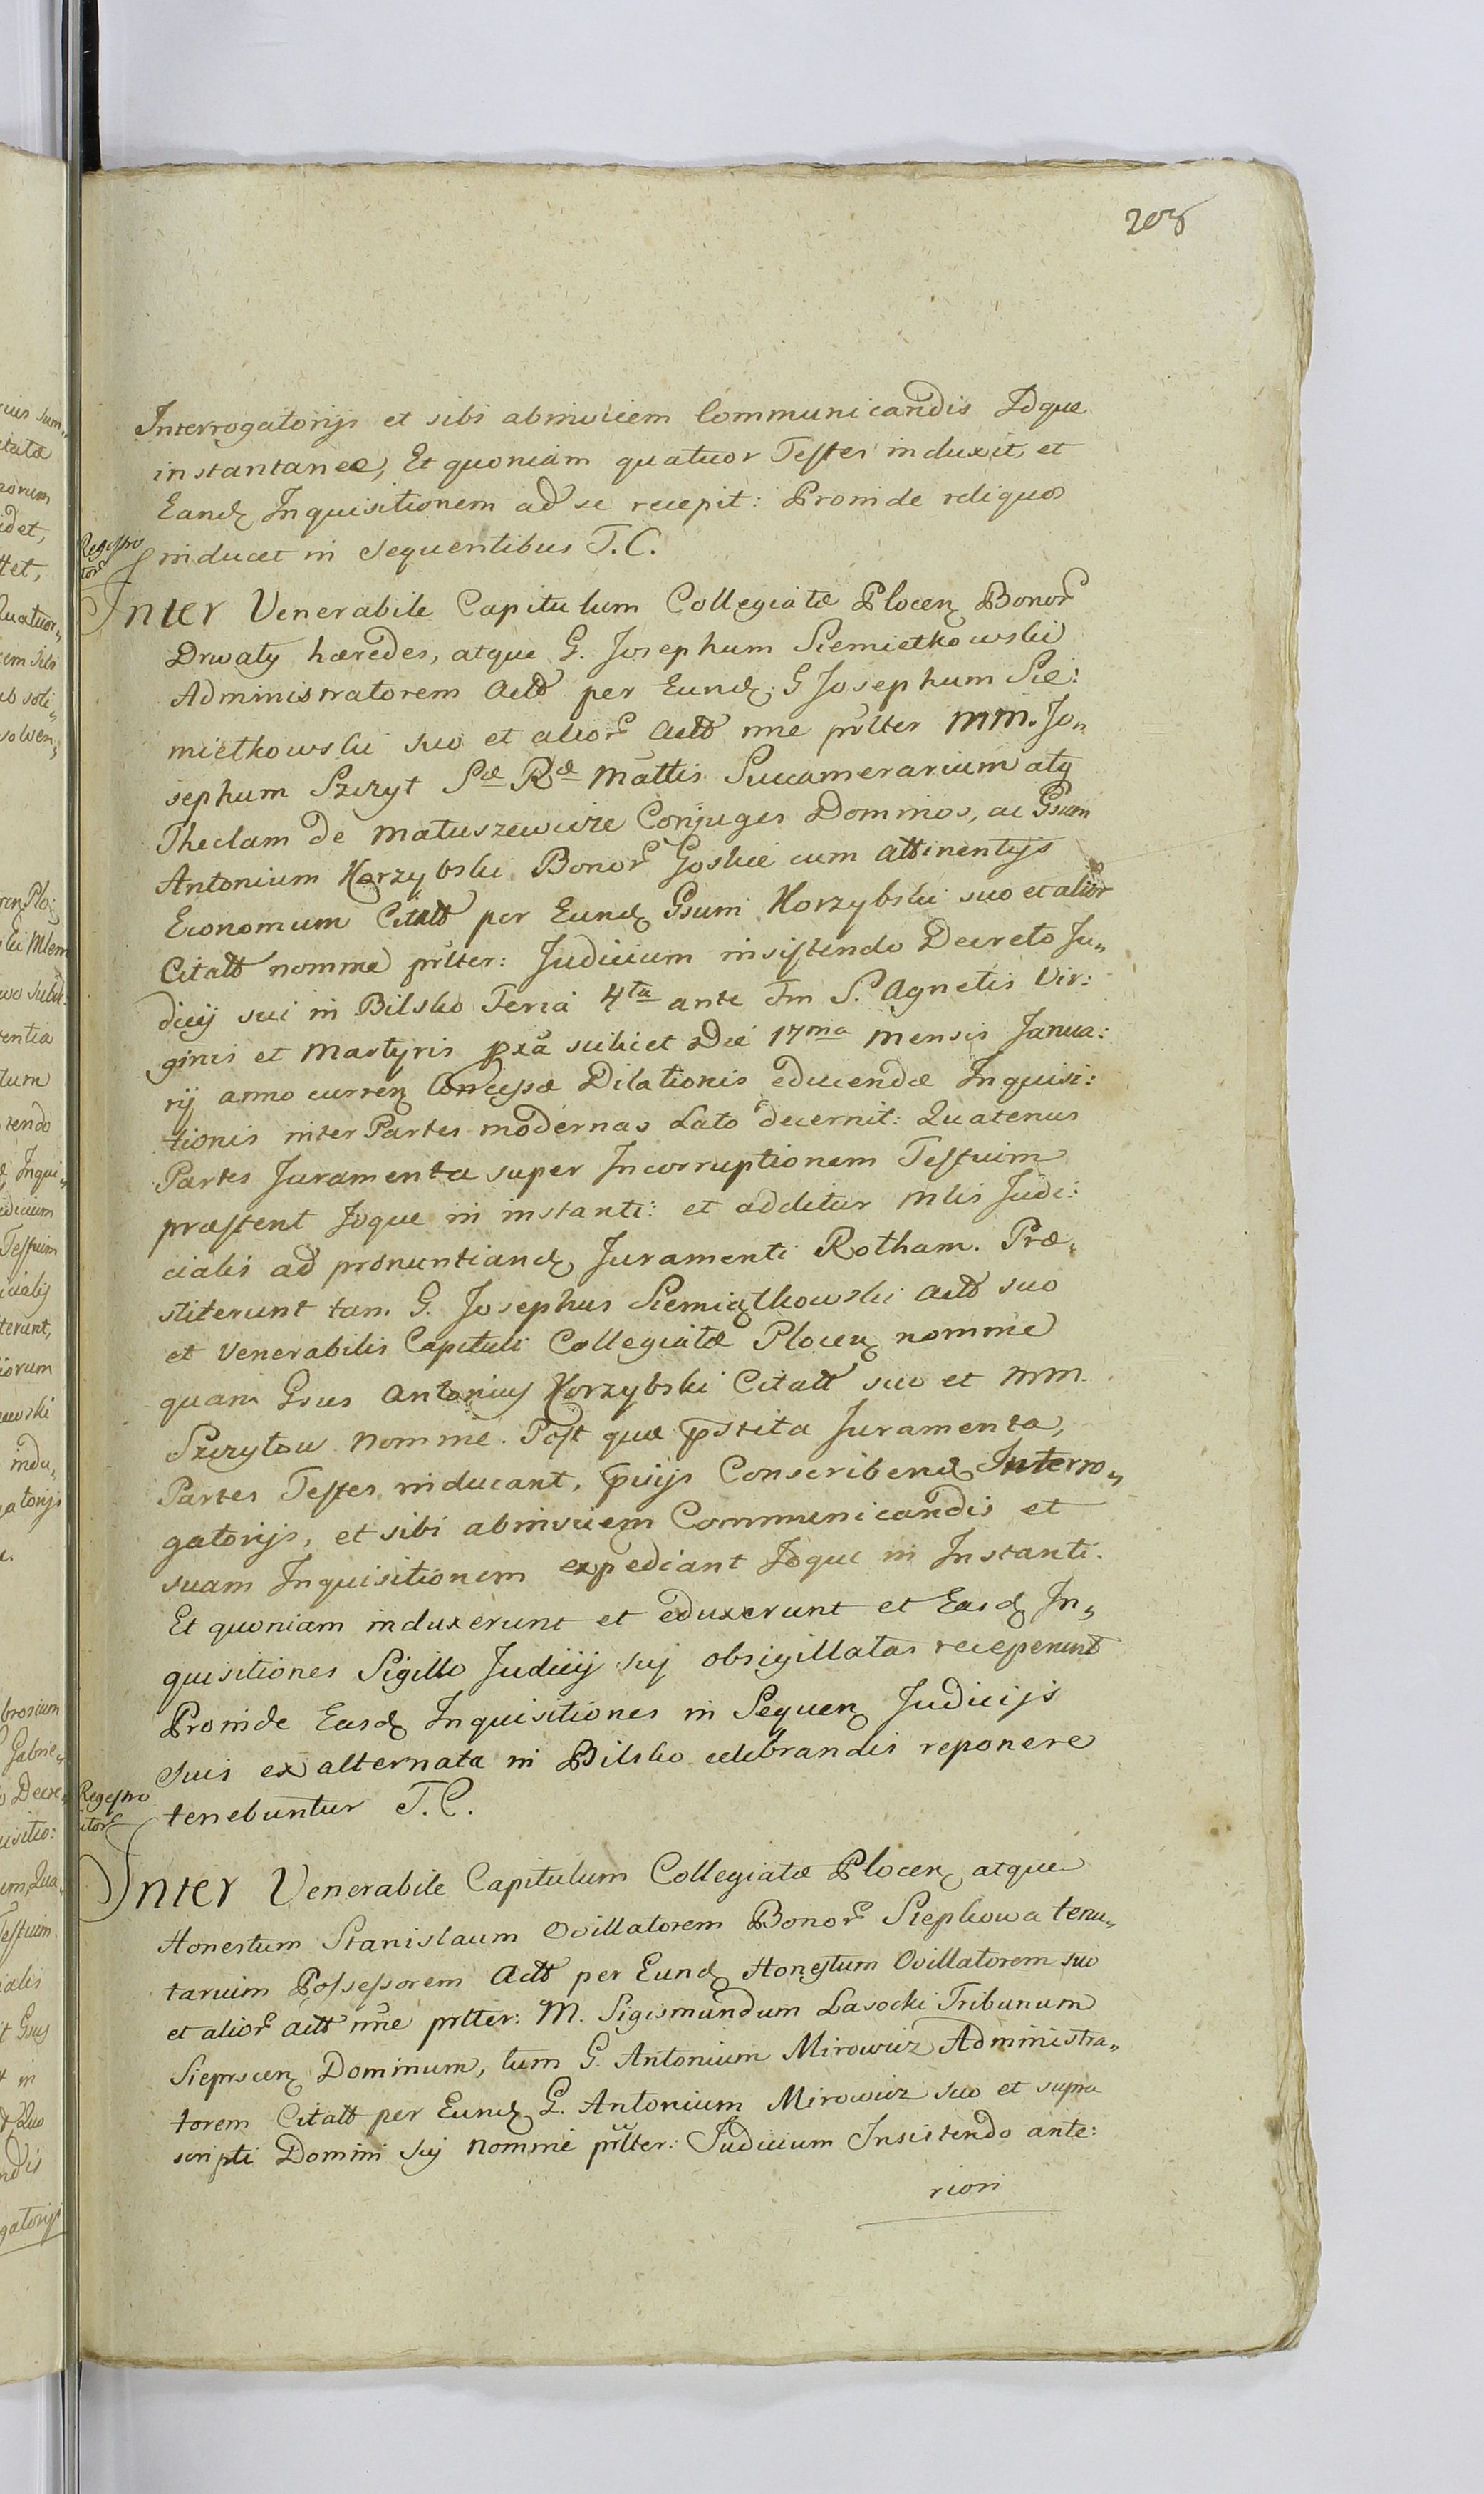 208
Interrogatorijs et sibi abinvicem Communicandis Idque
instantanee, Et quoniam quatuor Testes induxit, et
Eandꝫ Inquisitionem ad se recepit: Proinde reliquos
inducet in sequentibus T. C.
Regestro
Inter Venerabile Capitulum Collegiatæ Plocenꝫ Bonor̃
Drwały hæredes, atque G. Josephum Siemiętkowski
Administratorem Actt per Eundꝫ G Josephum Sie:
miętkowski suo et alior̃ Actt nne pr̃lter MM. Jo„
sephum Szczyt Sæ Ræ Mattis Succamerarium atqꝫ
Theclam de Matuszewicze Conjuges Dominos, ac Gsum
Antonium Korzybski Bonor̃ Goslice cum attinentijs
Economum Citatt per Eundꝫ Gsum Korzybski suo et alior̃
Citatt nomine pr̃lter: Judicium insistendo Decreto Ju„
dicij sui in Bilsko Feria 4ta ante Fm S. Agnetis Vir:
ginis et Martyris pxã scilicet Die 17ma Mensis Janua:
rij anno currenꝫ Concessæ Dilationis educendæ Inquisi:
tionis inter Partes modernas Lato decernit: Quatenus
Partes Juramenta super Incorruptionem Testium
præstent Idque in instanti: et additur Mlis Judi:
cialis ad pronuntiandꝫ Juramenti Rotham. Præ„
stiterunt tam G. Josephus Siemiątkowski Actt suo
et Venerabilis Capituli Collegiatæ Plocenꝫ nomine
quam Gsus Antonius Korzybski Citatt suo et MM.
Szczytow nomine. Post quæ pr̃stita Juramenta,
Partes Testes inducant, pr̃uijs Conscribendꝫ Interro„
gatorijs, et sibi abinvicem Communicandis et
suam Inquisitionem expediant Idque in Instanti.
Et quoniam induxerunt et eduxerunt et Easdꝫ In„
quisitiones Sigillo Judicij sui obsigillatas receperunt
Proinde Easdꝫ Inquisitiones in Sequenꝫ Judicijs
suis ex alternata in Bilsko celebrandis reponere
tenebuntur T. C.
Regestro
Inter Venerabile Capitulum Collegiatæ Plocenꝫ atque
Honestum Stanislaum Ovillatorem Bonor̃ Siepkowa tenu„
tarium Possessorem Actt per Eundꝫ Honestum Ovillatorem suo
et alior̃ Actt nne pr̃lter: M. Sigismundum Lasocki Tribunum
Sieprscenꝫ Dominum, tum G. Antonium Mirowicz Administra„
torem Citatt per Eundꝫ G. Antonium Mirowicz suo et supra
scripti Domini sui nomine pr̃lter: Judicium Insistendo ante:
riori